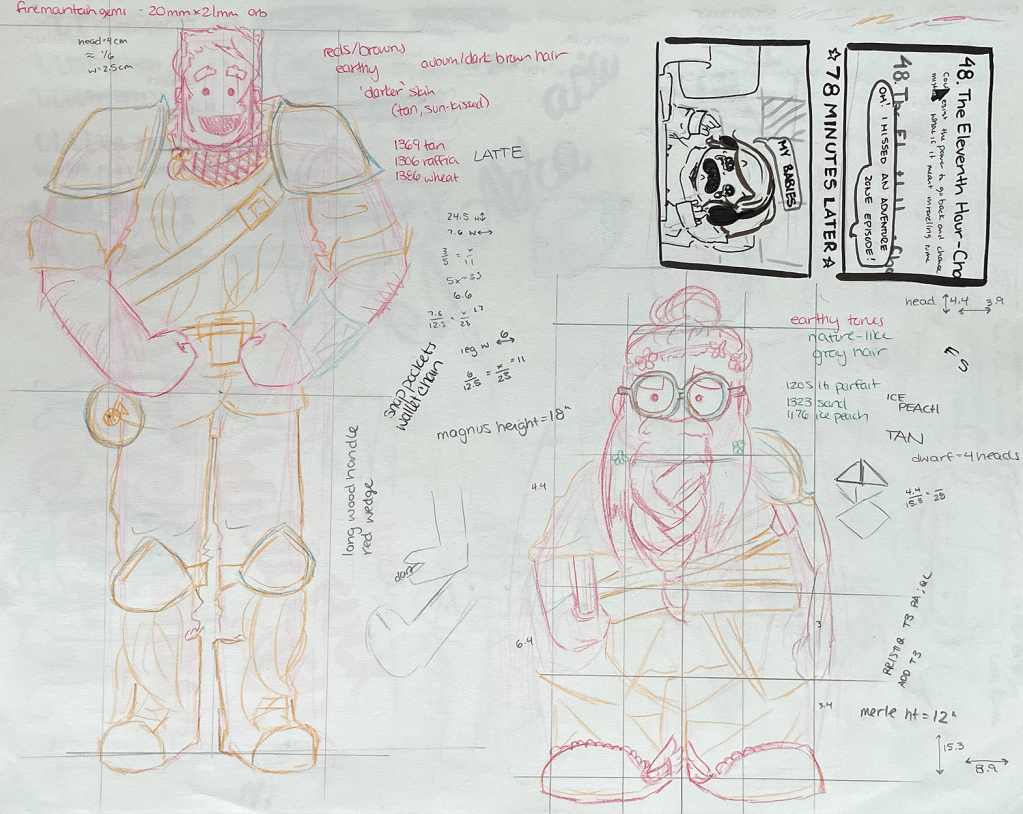 firemountaingems - 20mm x 21mm orb
head=4cm
≈ 1/6
w=2.5cm
reds/browns
earthy
auburn/dark brown hair
'darker' skin
(tan, sun-kissed)
1369 tan
1306 raffia
1386 wheat
LATTE
24.5 H↕
7.6 W↔
3/5 = x/11
5x=33
6.6
7.6/12.5 = x/28 17
leg w 6 ↔
6/12.5 = x/23 = 11
snap pockets
wallet chain
magnus height=18"
long wood handle
red wedge
48. The Eleventh Hour-Cha
OH! I MISSED AN ADVENTURE
ZONE EPISODE!
☆ 78 MINUTES LATER ☆
MY BABIES
head ↕4.4 3.9 ↔
earthy tones
nature-like
gray hair
1205 lt parfait
1323 sand
1176 ice peach
ICE
PEACH
TAN
dwarf=4 heads
4.4
6.4
3
3.4
ADD T3
merle ht=12"
15.3
8.9